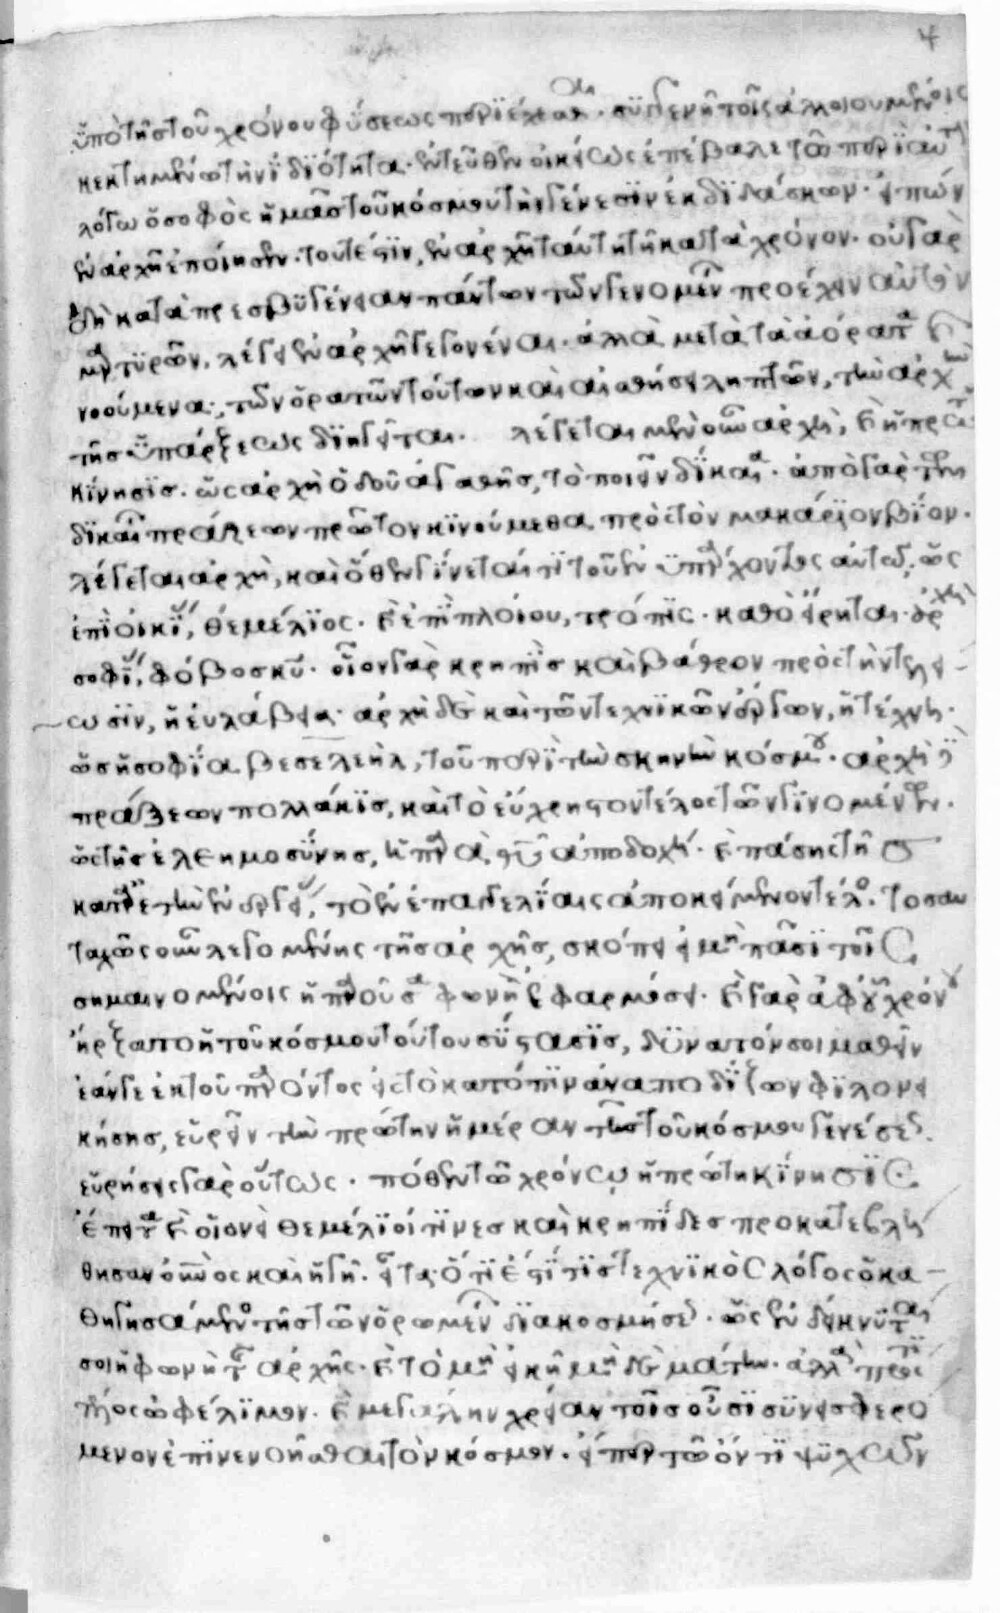 ὑπὸ τῆς τοῦ χρόνου φύσεως περιέχεσθαι. συγγενῆ τοῖς ἀλλοιουμένοις
κεκτημένω τὴν ἰδιότητα. ἐντεῦθεν οἰκείως ἐπέβαλε τῶ περὶ αὐτῆς
λόγω ὁ σοφὸς ἡμᾶς τοῦ κόσμου τὴν γένεσιν ἐκδιδάσκων. εἰπὼν
ἐν ἀρχῇ ἐποίησεν. τουτέστιν, ἐν ἀρχῇ ταύτῃ τῇ κατὰ χρόνον. οὐ γὰρ
δὴ κατὰ πρεσβυγένειαν πάντων τῶν γενομένων προέχειν αὐτὸν
μαρτυρῶν, λέγει ἐν ἀρχῇ γεγονέναι. ἀλλὰ μετὰ τὰ ἀόρατα καὶ
νοούμενα, τῶν ὁρατῶν τούτων καὶ αἰσθήσει ληπτῶν, τὴν ἀρχὴν
τῆς ὑπάρξεως διηγεῖται. λέγεται μὲν οὖν ἀρχὴ, καὶ ἡ πρώτη
κίνησις. ὡς ἀρχὴ ὁδοῦ ἀγαθῆς, τὸ ποιεῖν δίκαια. ἀπὸ γὰρ τῶν
δικαίων πράξεων πρῶτον κινούμεθα πρὸς τὸν μακάριον βίον.
λέγεται ἀρχὴ, καὶ ὅθεν γίνεταί τι τοῦ ἐνυπάρχοντος αὐτῶ, ὡς
ἐπὶ οἰκίας, θεμέλιος. καὶ ἐπὶ πλοίου, τρόπις. καθὸ εἴρηται ἀρχὴ
σοφίας, φόβος κυ. οἷον γὰρ κρηπὶς καὶ βάθρον πρὸς τὴν τελεί
ωσιν, ἡ εὐλάβεια. ἀρχὴ δὲ καὶ τῶν τεχνικῶν ἔργων, ἡ τέχνη.
ὡς ἡ σοφία βεσελεὴλ, τοῦ περὶ τὴν σκηνὴν κόσμου. ἀρχὴ
πράξεων πολλάκις, καὶ τὸ εὔχρηστον τέλος τῶν γινομένων.
ὡς τῆς ἐλεημοσύνης, ἡ παρὰ θυ ἀποδοχή. καὶ πάσης τῆς
κατ' ἀρετὴν ἐνεργείας, τὸ ἐν ἐπαγγελίαις ἀποκείμενον τέλος. τοσαυ
ταχῶς οὖν λεγομένης τῆς ἀρχῆς, σκόπει εἰ μὴ πᾶσι τοῖς
σημαινομένοις ἡ παροῦσα φωνὴ ἐφαρμόσει. καὶ γὰρ ἀφ' οὗ χρόνου
ἤρξατο ἡ τοῦ κόσμου τούτου σύστασις, δυνατόν σοι μαθεῖν
ἐάνγε ἐκ τοῦ παρόντος εἰς τὸ κατόπιν ἀναποδίζων φιλονει
κήσης, εὑρεῖν τὴν πρώτην ἡμέραν τῆς τοῦ κόσμου γενέσεως.
εὑρήσεις γὰρ οὕτως. πόθεν τῶ χρόνῳ ἡ πρώτη κίνησις
ἔπειτα καὶ οἱονεὶ θεμέλιοί τινες καὶ κρηπῖδες προκατεβλή
θησαν ὁ οὐνὸς καὶ ἡ γῆ. εἶτα ὅτι ἐστί τις τεχνικὸς λόγος ὁ κα
θηγησάμενος τῆς τῶν ὁρωμένων διακοσμήσεως. ὡς ἐνδείκνυταί
σοι ἡ φωνὴ τῆς ἀρχῆς. καὶ τὸ μὴ εἰκῆ μὴ δὲ μάτην. ἀλλὰ πρός τι
τέλος ὠφέλιμον. καὶ μεγάλην χρείαν τοῖς οὖσι συνεισφερό
μενον ἐπινενοῆσθαι τὸν κόσμον. εἴπερ τῶ ὄντι ψυχῶν